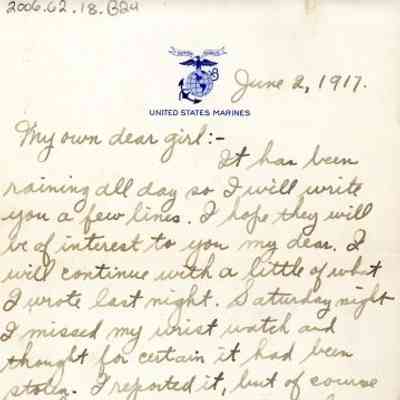 2006.62.18.B24
SEMPER FIDELIS
June 2, 1917.
UNITED STATES MARINES
My own dear girl:-
It has been
raining all day so I will write
you a few lines. I hope they will
be of interest to you my dear. I
will continue with a little of what
I wrote last night. Saturday night
I missed my wrist watch and
thought for certain it had been
stolen. I reported it, but of course